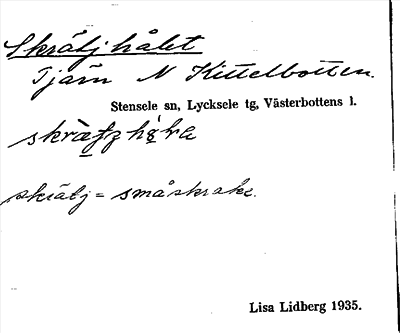 Skrälj hålet
Tjärn N Kittelbotten.
Stensele sn, Lycksele tg, Västerbottens l.
skrälj = småskrake.
Lisa Lidberg 1935.